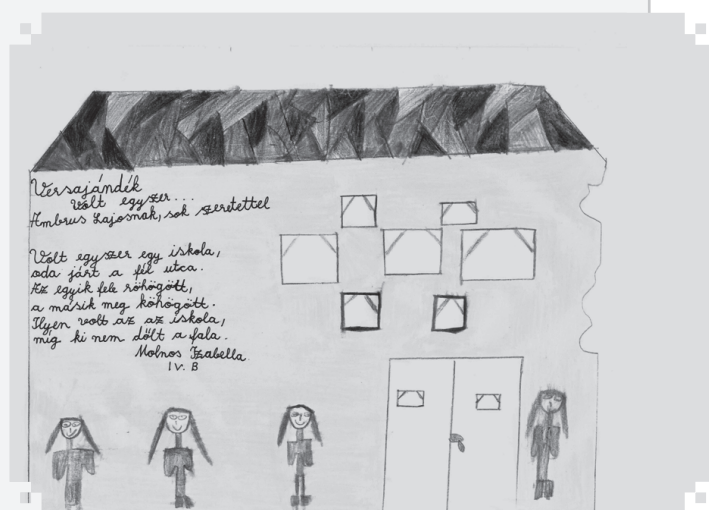 Versajándék
Volt egyszer...
Ambrus Lajosnak, sok szeretettel
Volt egyszer egy iskola,
oda járt a fél utca.
Az egyik fele röhögött,
a másik meg köhögött.
Ilyen volt az az iskola,
míg ki nem dőlt a fala.
Molnos Izabella
IV. B